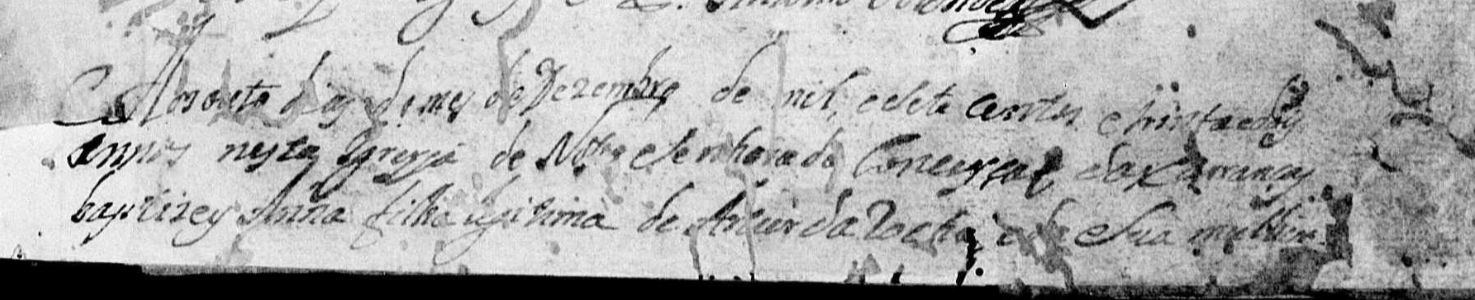 Aos outo dias do mes de Dezembro de mil e sete centos e trinta e dous
annos nesta Igreja de Nossa Senhora da Conceição
baptizey Anna filha legitima de da Rocha e de sua mulher